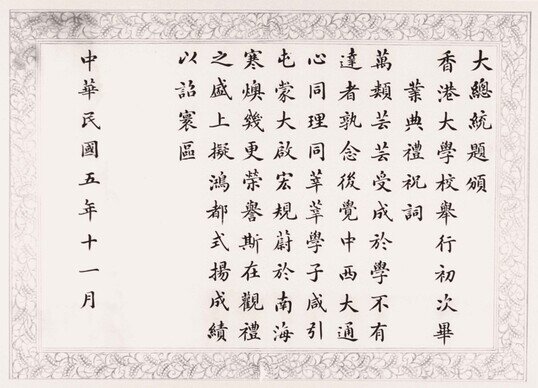 大總統題頒
香港大學校舉行初次畢
業典禮祝詞
萬類芸芸受成於學不有
達者孰念後覺中西大通
心同理同莘莘學子咸引
屯蒙大啟宏規蔚於南海
寒燠幾更榮譽斯在觀禮
之盛上擬鴻都式揚成績
以詔寰區
中華民國五年十一月